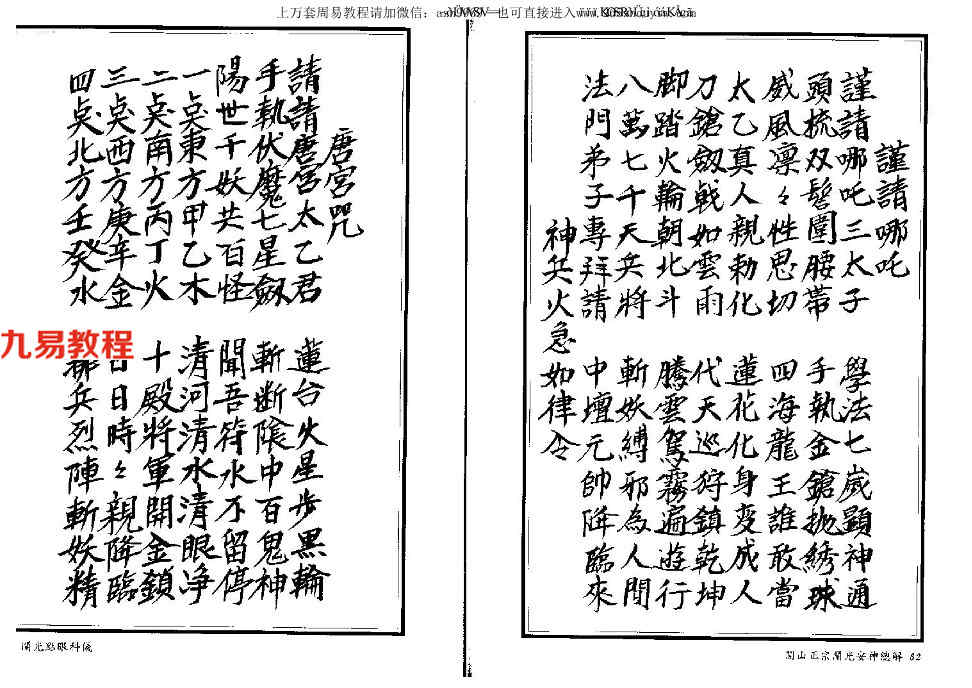 上万套周易教程请加微信：
也可直接进入
謹請哪吒
謹請哪吒三太子 學法七歲顕神通
頭梳双髻圍腰帯 手執金鎗抛綉球
威風凛々性思切 四海龍王誰敢當
太乙真人親勅化 蓮花化身变成人
刀鎗劔戟如雲雨 代天巡狩鎮乾坤
脚踏火輪朝北斗 騰雲駕霧遍遊行
八萬七千天兵將 斬妖縛邪為人間
法門弟子專拜請 中壇元帥降臨來
神兵火急如律令
閭山正宗開光安神總解 62
唐宮咒
請請唐宮太乙君 蓮台火星步黑輪
手執伏魔七星劔 斬断陰中百鬼神
陽世千妖共百怪 聞吾符水不留停
一点東方甲乙木 清河清水清眼净
二点南方丙丁火 十殿將軍開金鎖
三点西方庚辛金 日日時々親降臨
四点北方壬癸水 兵烈陣斬妖精
九易教程
開光點眼科儀